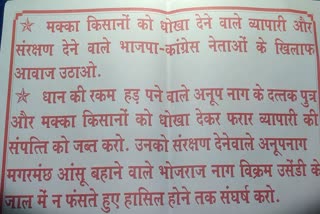 ★ मक्का किसानों को धोखा देने वाले व्यापारी और
संरक्षण देने वाले भाजपा-कांग्रेस नेताओं के खिलाफ
आवाज उठाओ.
★ धान की रकम हड़ पने वाले अनूप नाग के दत्तक पुत्र
और मक्का किसानों को धोखा देकर फरार व्यापारी की
संपत्ति को जब्त करो. उनको संरक्षण देनेवाले अनूपनाग
मगरमंछ आंसू बहाने वाले भोजराज नाग विक्रम उसेंडी के
जाल में न फसते हुए हासिल होने तक संघर्ष करो.